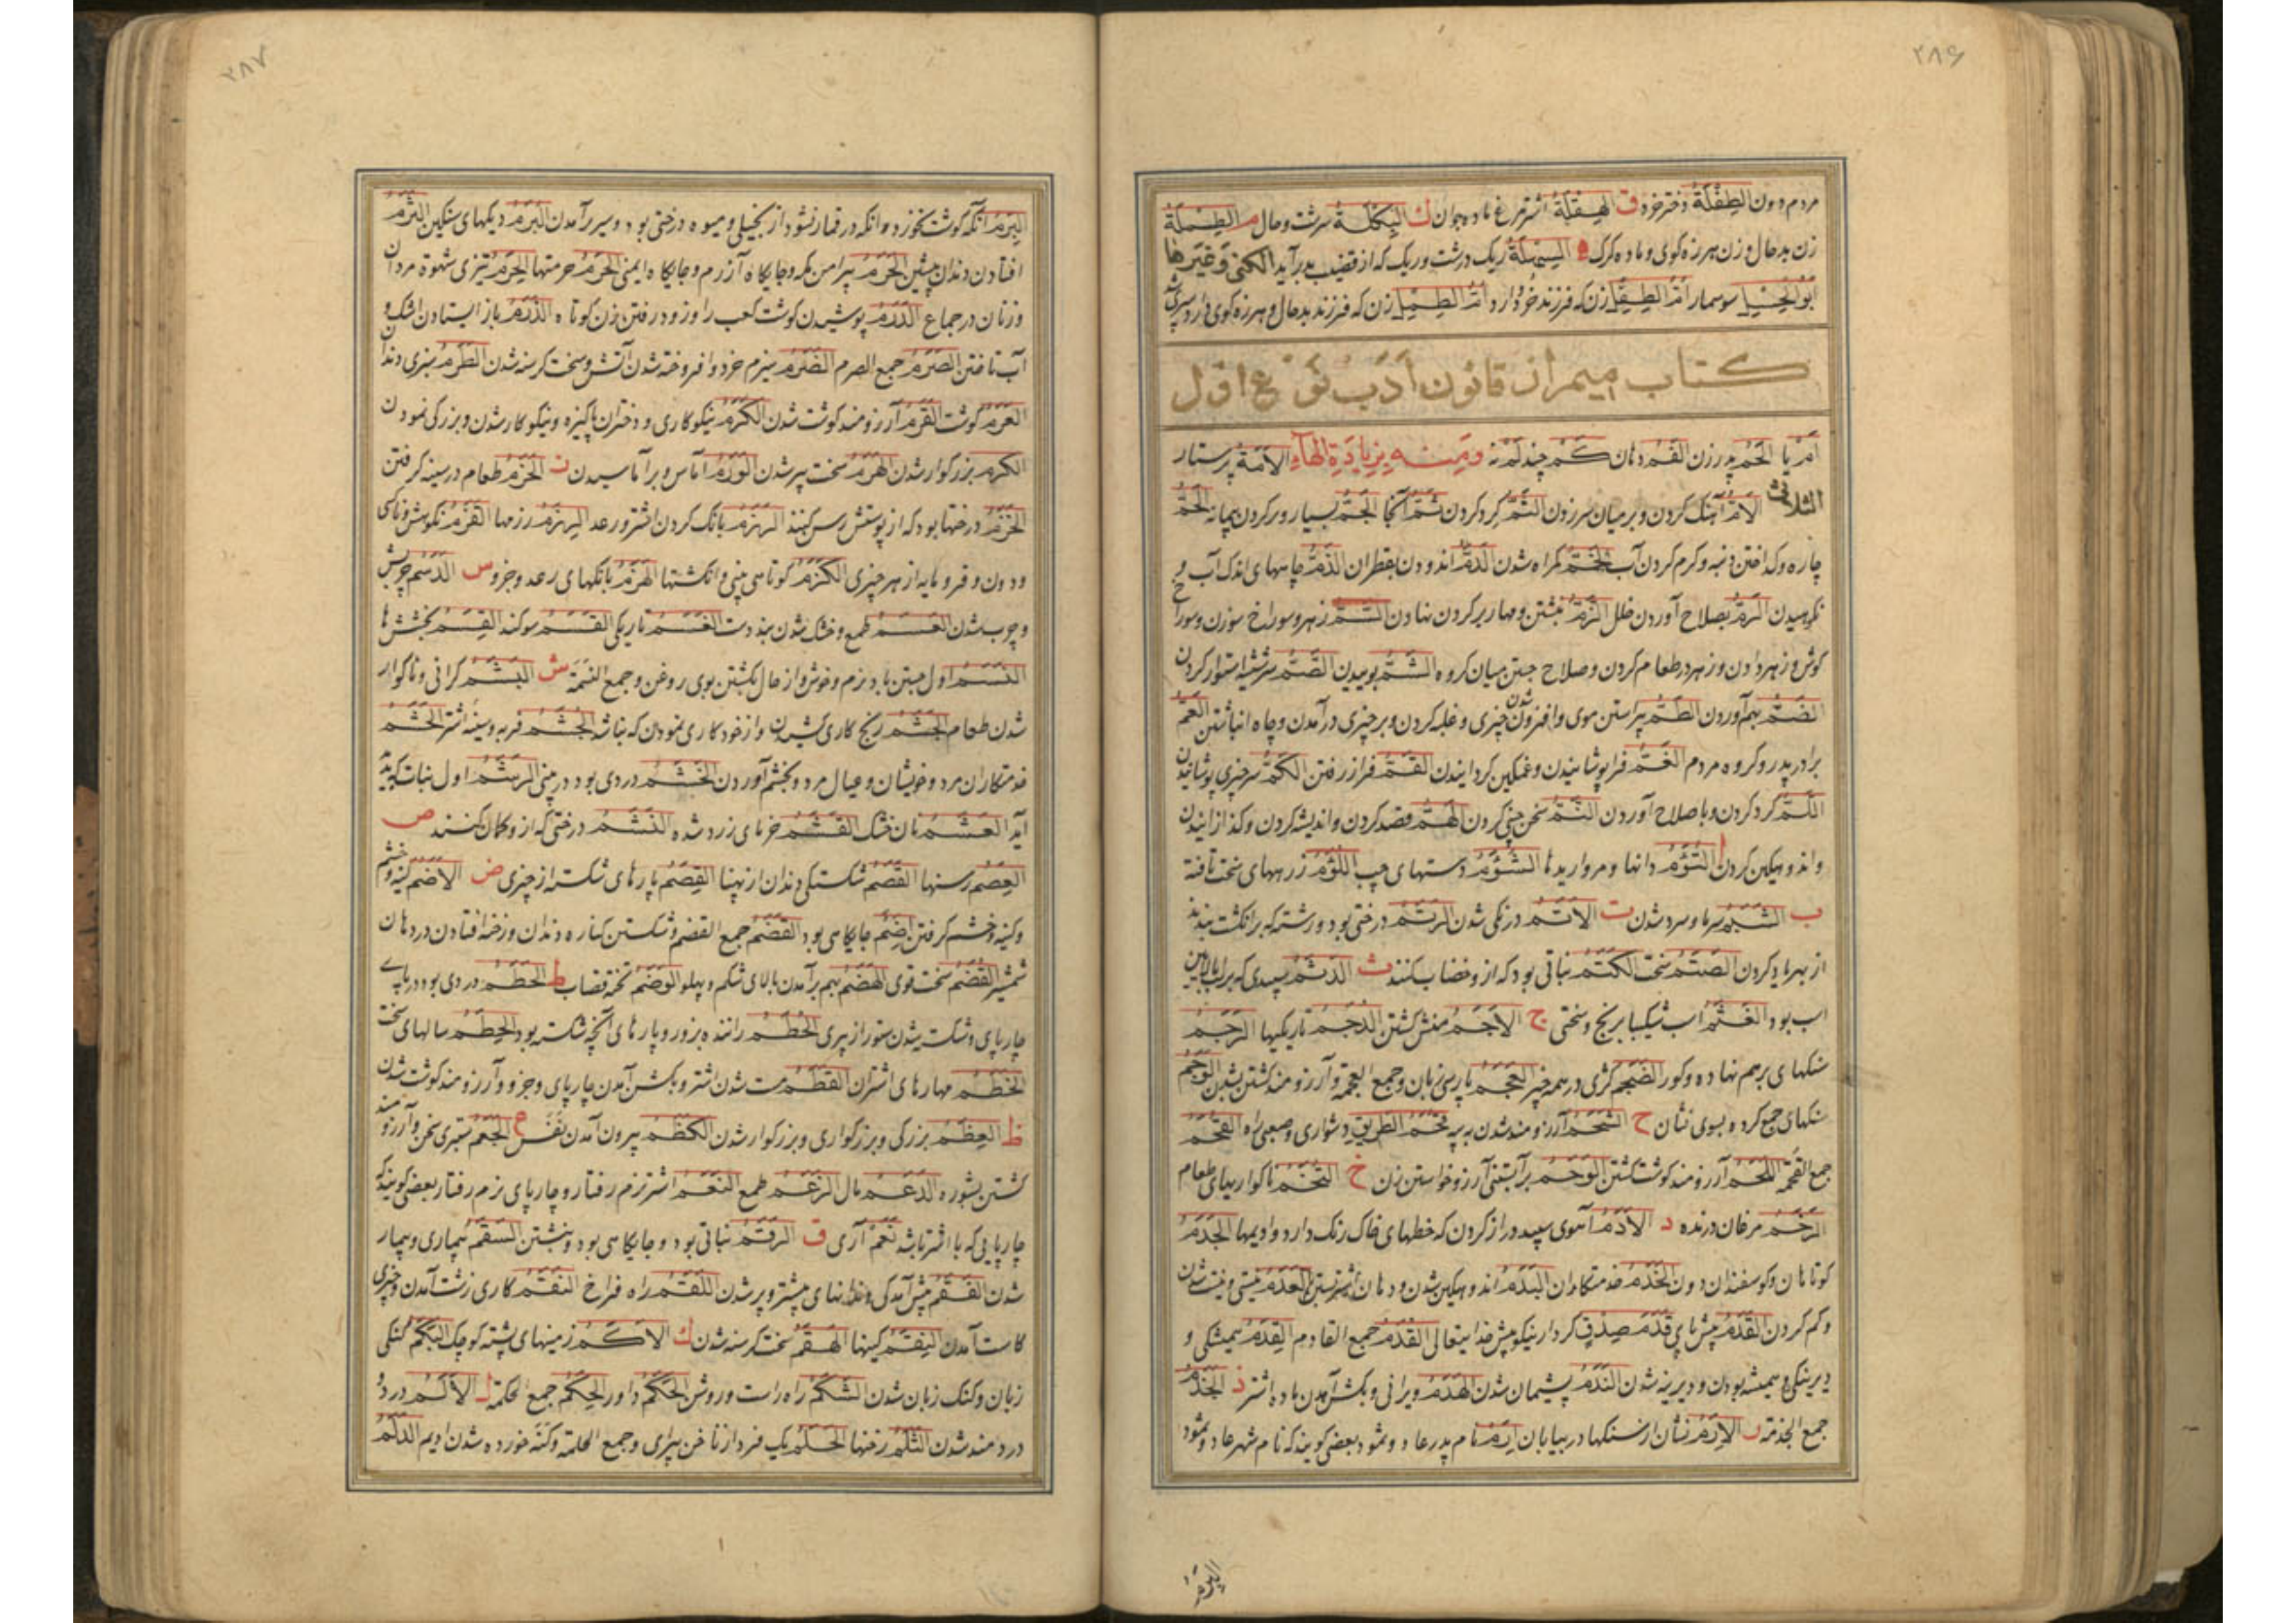 ۲۸۶
مردم دون الطِفْلَةُ دختر خرد ق الهِقْلَةُ اشتر مرغ ماده جوان ك البِكْلَةُ سرشت وحال م الطِمْلَةُ
زن بدحال و زن هرزه کوی و ماده کرک ه السِهْلَةُ ریک درشت و ریک که از قضیب بدرآید الکنی وَغَیرها
اَبُو الحِسْلِ سوسمار اُمُّ الطِفْلِ زن که فرزند خرد دارد اُمُّ الطِمْلِ زن که فرزند بدحال و هرزه کوی دارد
کتاب المیم از قانون اَدَب نوع اول
اَمْ یا الحَمُ پدر زن الفَمُ دهان کَمْ چند لَمْ نه ومنه بزیادة الهآء الاَمَةُ پرستار
الثلاثی الاَمُّ آهنک کردن و بر میان سر زدن الثَمُّ کرد کردن ثَمَّ آنجا الجَمُّ بسیار و پر کردن پیمانه الحَمُّ
چاره و کداختن دنبه و کرم کردن آب شدن الدَمُّ اندودن بقطران الذَمُّ چاههای اندک آب و
نکوهیدن الرَمُّ بصلاح آوردن خلل الزَمُّ نبشتن و مهار بر کردن نهادن السَمُّ زهر و سوراخ سوزن و سوراخ
کوش و زهر دادن و زهر در طعام کردن و صلاح جستن میان کروه الشَمُّ بوییدن الصَمُّ سر شیشه استوار کردن
الضَمُّ بهم آوردن الطَمُّ پیراستن موی و افزون شدن چیزی و غلبه کردن و بر چیزی درآمدن و چاه انباشتن العَمُّ
برادر پدر و کروه مردم الغَمُّ فرا پوشانیدن و غمکین کردانیدن القَمُّ فراز رفتن الکَمُّ سر چیزی پوشانیدن
اللَمُّ کرد کردن و باصلاح آوردن النَمُّ سخن چینی کردن الهَمُّ قصد کردن و اندیشه کردن و کدازانیدن
و اندوهکین کردن ا التُؤَمُ دانها و مرواریدها الشُؤَمُ دستهای چپ اللُؤَمُ زرههای سخت بافته
ب الشَبَمُ سرما و سرد شدن ت الاَتَمُ درنکی شدن الرَتَمُ درختی بود و رشته که بر انکشت بندند
از بهر یاد کردن الصَتَمُ سخت الکَتَمُ نباتی بود که ازو خضاب کنند ث الرَثَمُ سپیدی که بر لب بالایین
اسب بود الغَثَمُ ج الاَجَمُ منش کشتن الدُجَمُ تاریکیها الرَجَمُ
سنکهای بر هم نهاده و کور الضَجَمُ کژی در همه چیز العَجَمُ پارسی زبان وجمع العجمة و آرزومند کشتن الوَجَمُ
سنکهای جمع کرده بسوی نشان ح الشَحَمُ آرزومند شدن به پیه قُحَمُ الطَریقِ دشواری و صعبی راه القُحَمُ
جمع القحمة اللَحَمُ آرزومند کوشت کشتن الوَحَمُ بر آبستنی آرزو خواستن زن خ التُخَمُ ناکواریهای طعام
الرَخَمُ مرغان درنده د الاَدَمُ آهوی سپید دراز کردن که خطهای خاک رنک دارد و ادیمها الجَدَمُ
کوتاهان و کوسفندان دون الخَدَمُ خدمتکاران السَدَمُ اندوهکین شدن و دهان اشتر بستن العَدَمُ نیستی و نیست شدن
و کم کردن القَدَمُ پیش پای قَدَمَ صِدْقٍ کردار نیکو پیش خدایتعالی القُدَمُ جمع القادم القِدَمُ همیشکی و
دیرینکی و همیشه بودن و دیرینه شدن النَدَمُ پشیمان شدن الهَدَمُ ویرانی و بکشن آمدن ماده اشتر ذ الجِذَمُ
جمع الجذمة ر الاِرَمُ نشان از سنکها در بیابان اِرَمُ نام پدر عاد و ثمود بعضی کویند که نام شهر عاد و ثمود
البَرَمُ
۲۸۷
البَرَمُ آنکه کوشت نخورد و آنکه در قمار نشود از بخیلی و میوه درختی بود و سیر برآمدن البُرَمُ دیکهای سنکین الثَرَمُ
افتادن دندان پیشین الحَرَمُ پیرامن مکه و جایکاه آزرم و جایکاه ایمنی الحُرَمُ حرمتها الحِرَمُ تیزی شهوة مردان
و زنان در جماع الدَرَمُ پوشیدن کوشت کعب را و زود رفتن زن کوتاه الرَزَمُ باز ایستادن اشک و
آب تافتن الصِرَمُ جمع الصرم الضَرَمُ هیزم خرد و افروخته شدن آتش و سخت کرسنه شدن الطَرَمُ سبزی دندان
العَرَمُ کوشت القَرَمُ آرزومند کوشت شدن الکَرَمُ نیکوکاری و دختران پاکیزه و نیکوکار شدن و بزرکی نمودن
الکرم بزرکوار شدن الهَرَمُ سخت پیر شدن الوَرَمُ آماس و برآماسیدن ز الحَزَمُ طعام در سینه کرفتن
الخَزَمُ درختها بود که از پوستش رسن کنند الرَزَمَةُ بانک کردن اشتر و رعد الرِزَمُ رزمها القَزَمُ نکوهش و ناکس
و دون و فرومایه از هر چیزی الکَزَمُ کوتاهی بینی و انکشتها الهَزَمُ بانکهای رعد وجزو س الدَسَمُ چربش
و چرب شدن العَسَمُ طمع و خشک شدن بند دست الغَسَمُ تاریکی القَسَمُ سوکند القِسَمُ بخششها
النَسَمُ اول جستن باد نرم و خوش و از حال بکشتن بوی روغن و جمع النسمة ش البَشَمُ کرانی و ناکوار
شدن طعام الجَشَمُ رنج کاری کشیدن و از خود کاری نمودن که نباشد الجُشَمُ فربه و سینه اشتر الحَشَمُ
خدمتکاران مرد و خویشان و عیال مرد و بخشم آوردن الخَشَمُ دردی بود در بینی الرَشَمُ اول نبات که پدید
آید العَشَمُ نان خشک القَشَمُ خرمای زرد شده النَشَمُ درختی که ازو کمان کنند ص
العِصَمُ رسنها القَصَمُ شکستکی دندان از پهنا القِصَمُ پارهای شکسته از چیزی ض الاَضَمُ کینه و خشم
و کینه و خشم کرفتن اِضَمُ جایکاهی بود القَضَمُ جمع القضیم و شکستن کناره دندان و رخنه افتادن در دهان
شمشیر القُضَمُ سخت قوی الهَضَمُ بهم برآمدن بالای شکم و پهلو الوَضَمُ تخته قصاب ط الحَطَمُ دردی بود در پای
چارپای و شکسته شدن ستور از پیری الحُطَمُ راننده بزور و پارهای آنچه شکسته بود الحِطَمُ سالهای سخت
الخُطَمُ مهارهای اشتران القَطَمُ مست شدن اشتر و بکشن آمدن چارپای وجزو و آرزومند کوشت شدن
ظ العِظَمُ بزرکی و بزرکواری و بزرکوار شدن الکَظَمُ بیرون آمدن نَفَس ع الجَعَمُ ستبری سخن و آرزومند
کشتن بشوره الدَعَمُ مال الزَعَمُ طمع النَعَمُ اشتر نرم رفتار و چارپای نرم رفتار بعضی کویند که
چارپایی که با اشتر باشد نَعَمْ آری ق الرَقَمُ نباتی بود و جایکاهی بود و نبشتن السَقَمُ بیماری و بیمار
شدن الفَقَمُ پیش آمدکی دندانهای پیشتر و پر شدن اللَقَمُ راه فراخ النَقَمُ کاری زشت آمدن و چیزی
کاست آمدن النِقَمُ کینها الهَقَمُ سخت کرسنه شدن ك الاَکَمُ زمینهای پشته کوچک البَکَمُ کنکی
زبان و کنک زبان شدن الشَکَمُ راه راست و روش الحَکَمُ داور الحِکَمُ جمع الحکمة ل الاَلَمُ درد و
دردمند شدن الثُلَمُ رخنها الحَلَمُ یک فرد از ناخن پیرای و جمع الحلمة و کنه خورده شدن ادیم الدَلَمُ